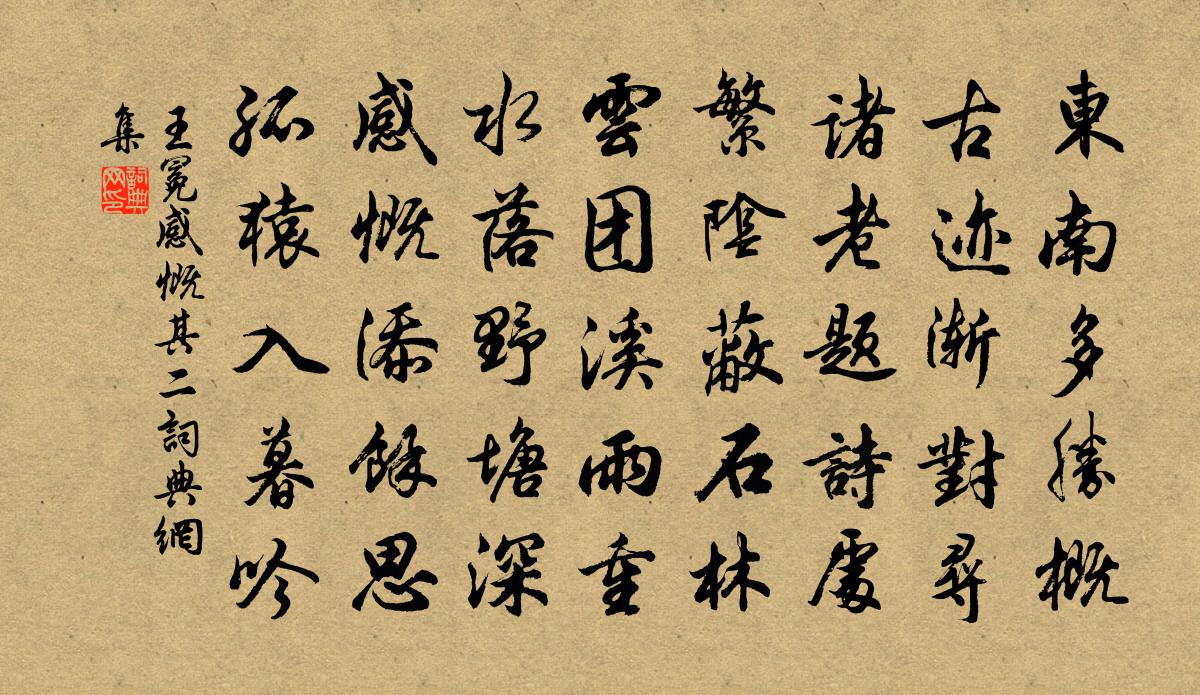 東南多勝概
古迹漸對尋
诸老題詩處
繁陰蔽石林
雲团溪雨重
水落野塘深
感慨添餘思
孤猿入暮吟
王冕感慨其二詞典網
集
詞典
网印